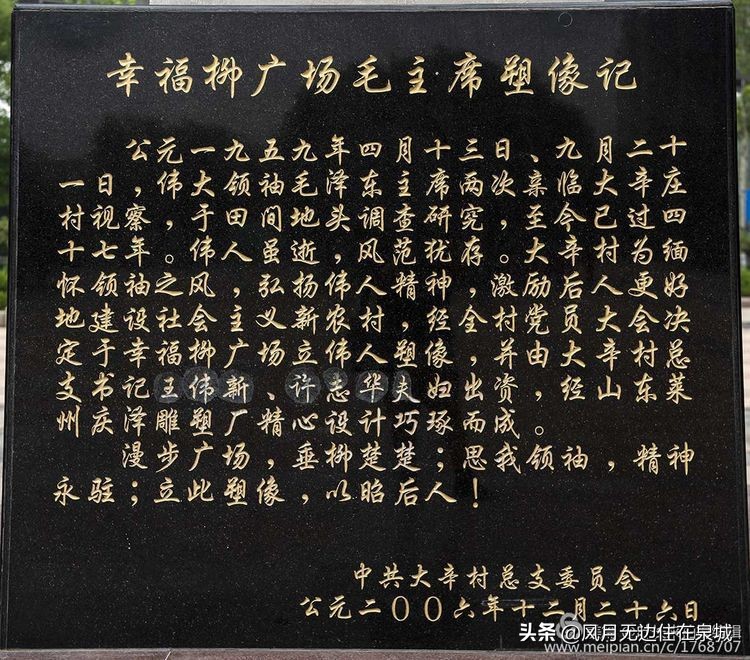 幸福柳广场毛主席塑像记
公元一九五九年四月十三日、九月二十
一日,伟大领袖毛泽东主席两次亲临大辛庄
村视察,于田间地头调查研究,至今已过四
十七年。伟人虽逝,风范犹存。大辛村为缅
怀领袖之风,弘扬伟人精神,激励后人更好
地建设社会主义新农村,经全村党员大会决
定于幸福柳广场立伟人塑像,并由大辛村总
支书记王伟新、许志华夫妇出资,经山东莱
州庆泽雕塑厂精心设计巧琢而成。
漫步广场,垂柳楚楚;思我领袖,精神
永驻;立此塑像,以昭后人!
中共大辛村总支委员会
公元二〇〇六年十二月二十六日
头条 @风月无边住在泉城
www.meipian.cn/c/1768707